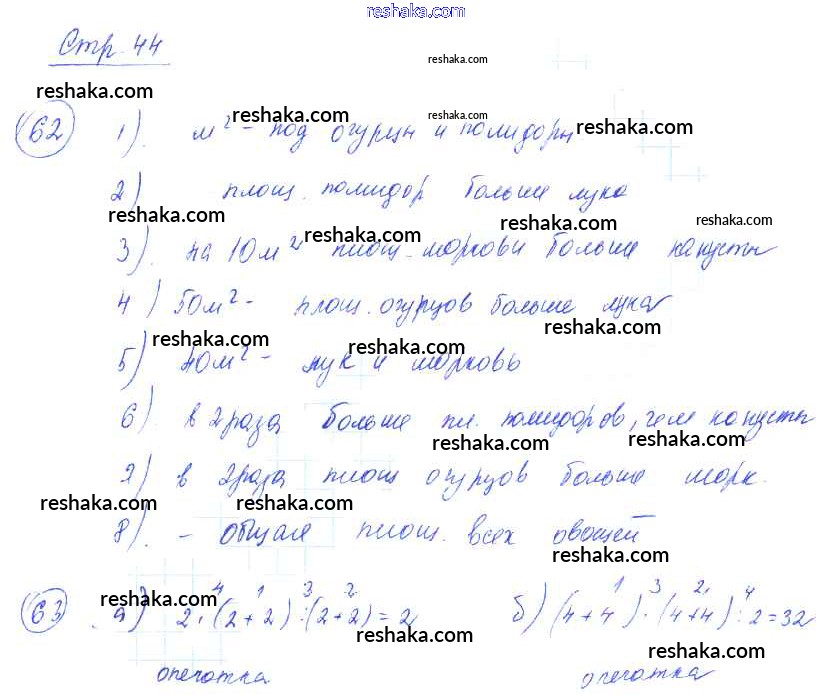 reshaka.com
Стр. 44
reshaka.com
reshaka.com
reshaka.com reshaka.com reshaka.com
62 1). м² - под огурцы и помидоры
2) площ. помидор больше лука
reshaka.com reshaka.com reshaka.com reshaka.com
3). на 10 м² площ. моркови больше капусты
4) 50 м² - площ. огурцов больше лука
reshaka.com reshaka.com reshaka.com
5) 40 м² - лук и морковь
6). в 2 раза больше пл. помидоров, чем капусты
reshaka.com reshaka.com
7) в 2 раза площ огурцов больше морк.
reshaka.com reshaka.com
8). - общая площ. всех овощей
reshaka.com
63 а) 2 · (2 + 2) : (2 + 2) = 2 б) (4 + 4) · (4 + 4) : 2 = 32
4 1 3 2 1 3 2 4
reshaka.com reshaka.com reshaka.com
опечатка опечатка